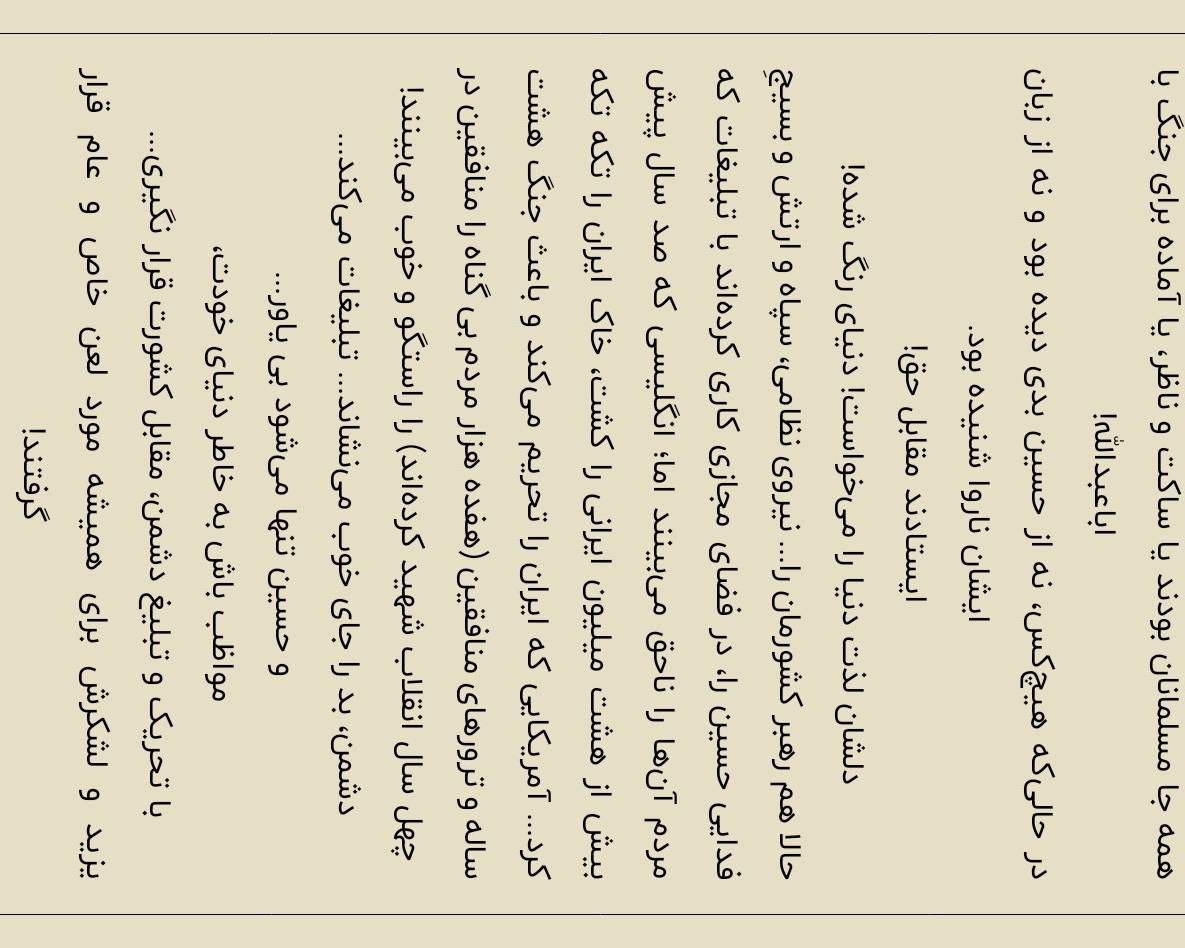 همه جا مسلمانان بودند یا ساکت و ناظر، یا آماده برای جنگ با
اباعبدالله!
در حالی‌که هیچ‌کس، نه از حسین بدی دیده بود و نه از زبان
ایشان ناروا شنیده بود.
ایستادند مقابل حق!
دلشان لذت دنیا را می‌خواست! دنیای رنگ شده!
حالا هم رهبر کشورمان را... نیروی نظامی، سپاه و ارتش و بسیجِ
فدایی حسین را، در فضای مجازی کاری کرده‌اند با تبلیغات که
مردم آن‌ها را ناحق می‌بینند اما؛ انگلیسی که صد سال پیش
بیش از هشت میلیون ایرانی را کشت، خاک ایران را تکه تکه
کرد... آمریکایی که ایران را تحریم می‌کند و باعث جنگ هشت
ساله و ترورهای منافقین (هفده هزار مردم بی گناه را منافقین در
چهل سال انقلاب شهید کرده‌اند) را راستگو و خوب می‌بینند!
دشمن، بد را جای خوب می‌نشاند... تبلیغات می‌کند...
و حسین تنها می‌شود بی یاور...
مواظب باش به خاطر دنیای خودت،
با تحریک و تبلیغ دشمن، مقابل کشورت قرار نگیری...
یزید و لشکرش برای همیشه مورد لعن خاص و عام قرار
گرفتند!